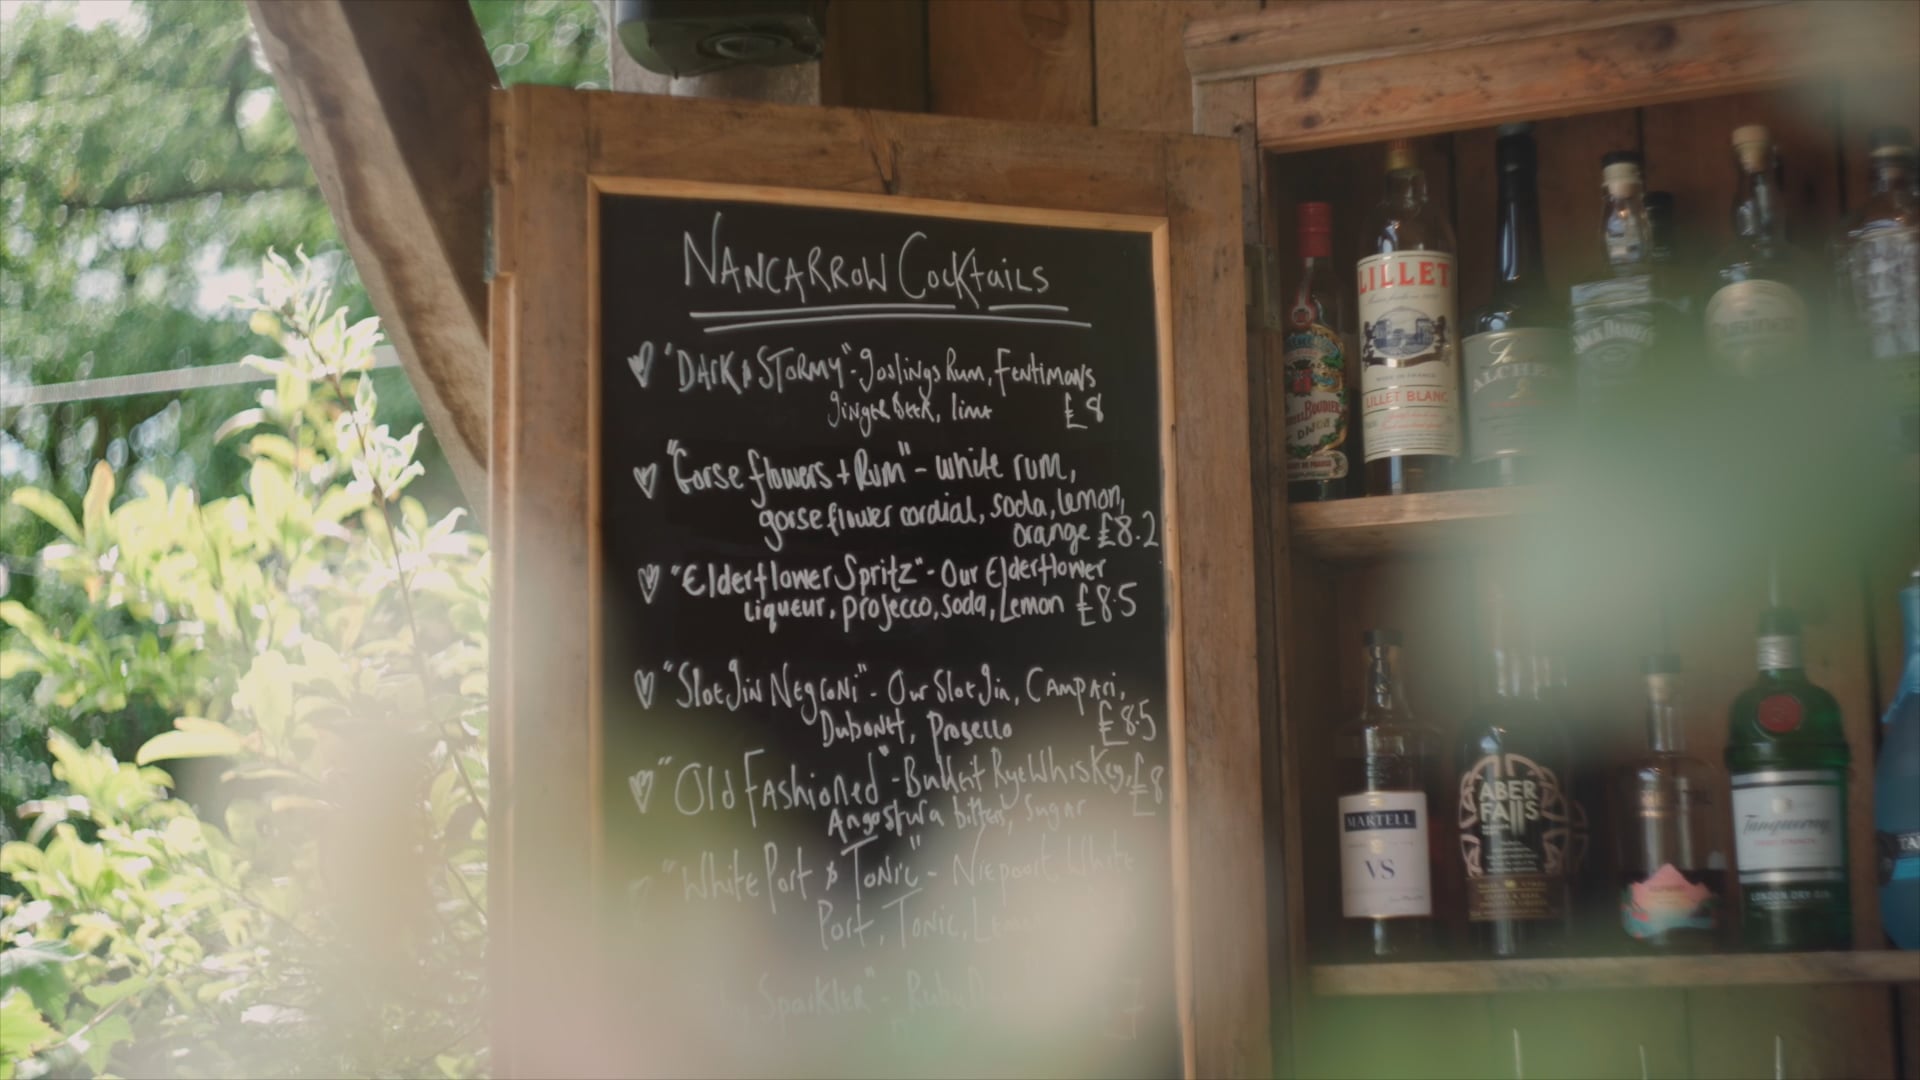 NANCARROW COCKtAiLS
"DARK & STORMY" - Goslings Rum, Fentimans
Ginger Beer, lime £8
"Gorse flowers + Rum" - white rum,
gorse flower cordial, soda, lemon,
orange £8.2
"Elderflower Spritz" - Our Elderflower
Liqueur, prosecco, soda, Lemon £8.5
"Sloe Gin Negroni" - Our Sloe Gin, Campari,
Dubonet, Prosecco £8.5
"Old Fashioned" - Bulleit Rye Whiskey, £8
Angostura bitters, sugar
"White Port & Tonic" - Niepoort White
Port, Tonic,
Sparkler" - Ruby
LILLET
LILLET BLANC
JACK DANIEL'S
MARTELL
VS
ABER
FAllS
Tanqueray
LONDON DRY GIN